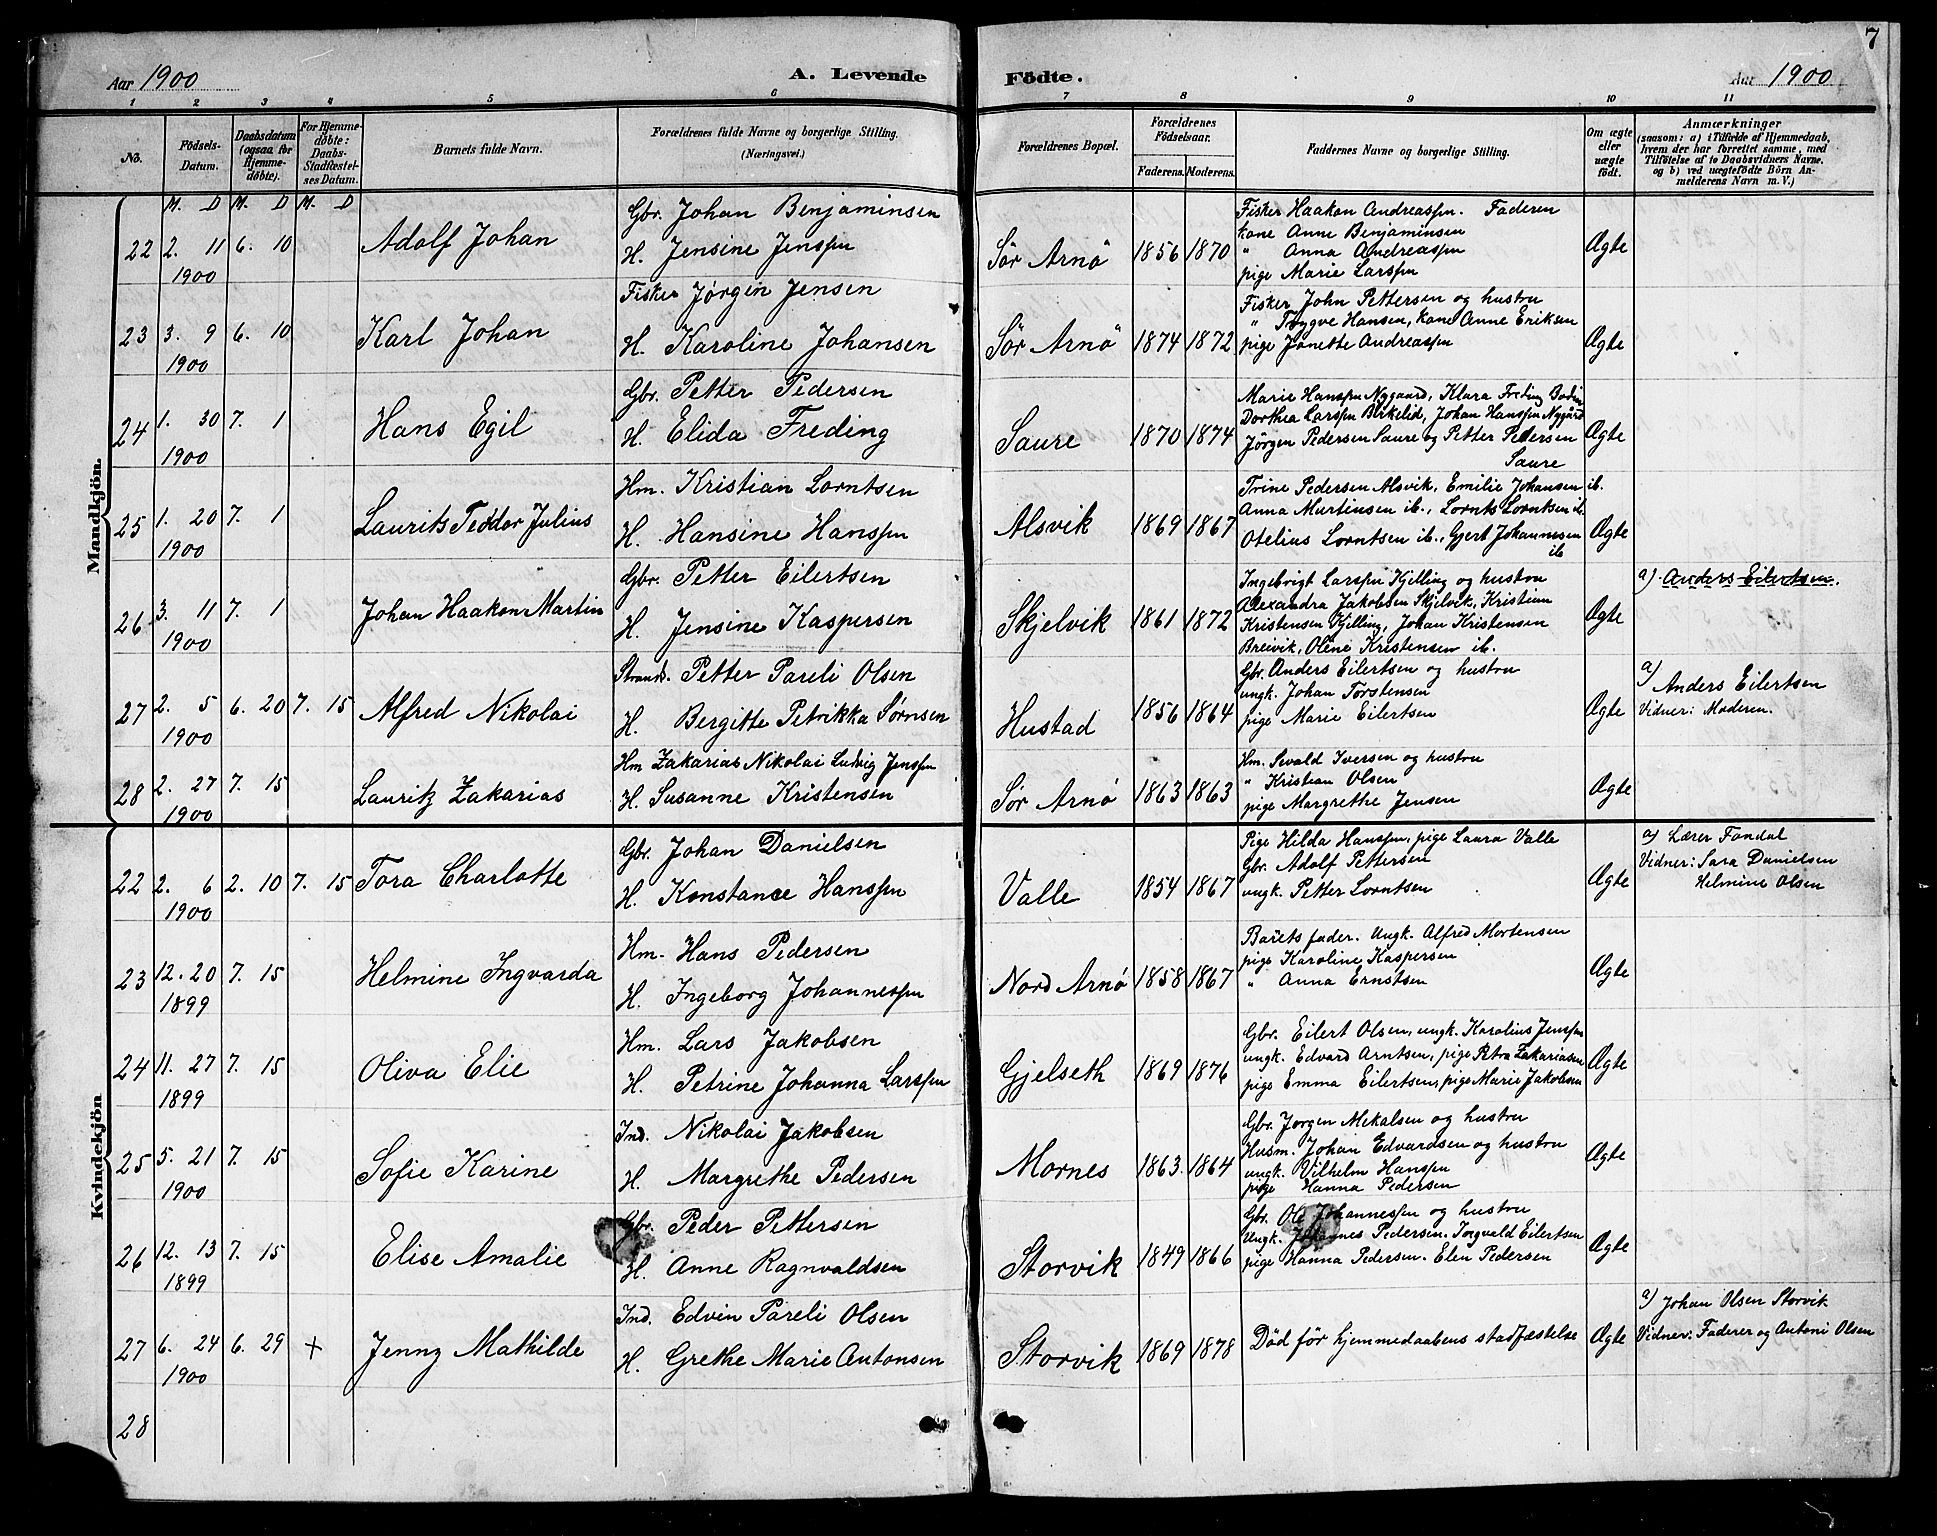 7
Aar 1900 A. Levende Födte. Aar 1900
1 2 3 4 5 6 7 8 9 10 11
No.
Födsels-
Datum.
Daabsdatum
(ogsaa for
Hjemme-
döbte).
For Hjemme-
döbte:
Daabs-
Stadfæstel-
ses Datum.
Barnets fulde Navn.
Forældrenes fulde Navne og borgerlige Stilling.
(Næringsvei.)
Forældrenes Bopæl.
Forældrenes
Födselsaar.
Faderens. Moderens.
Faddernes Navne og borgerlige Stilling.
Om ægte
eller
uægte
födt.
Anmærkninger
(saasom: a) i Tilfælde af Hjemmedaab,
hvem der har forrettet samme, med
Tilföielse af to Daabsvidners Navne.
og b) ved uægtefödte Börn An-
melderens Navn m. V.)
M. D M. D M. D
Mandkjön.
22 2. 11 1900 6. 10 Adolf Johan
Gbr. Johan Benjaminsen
H. Jensine Jenspn
Sör Arnö 1856 1870
Fisker Haakon Andreaspn. Faderen
kone Anne Benjaminsen
" Anna Andreaspn
pige Marie Larspn
Ægte
23 3. 9 1900 6. 10 Karl Johan
Fisker Jörgen Jensen
H. Karoline Johansen
Sör Arnö 1874 1872
Fisker John Pettersen og hustru
" Trygve Hansen, kone Anne Eriksen
pige Janette Andreaspn
Ægte
24 1. 30 1900 7. 1 Hans Egil
Gbr. Petter Pedersen
H. Elida Freding
Saure 1870 1874
Marie Hanspn Nygaard, Klara Freding Bodin
Dorthea Larspn Birkelid, Johan Hanspn Nygård
Jörgen Pedersen Saure og Petter Pedersen
Saure
Ægte
25 1. 20 1900 7. 1 Laurits Teodor Julius
Hm. Kristian Lorntsen
H. Hansine Hanspn
Alsvik 1869 1867
Trine Pedersen Alsvik, Emilie Johansen ib.
Anna Martinsen ib., Lornts Lorntsen ib.
Otelius Lorntsen ib., Gjert Johannesen
ib
Ægte
26 3. 11 1900 7. 1 Johan Haakon Martin
Gbr. Petter Eilertsen
H. Jensine Kaspersen
Skjelvik 1861 1872
Ingebrigt Larspn Kjelling og hustru
Alexandra Jakobsen Skjelvik, Kristian
Kristensen Kjelling, Johan Kristensen
Breivik, Oline Kristensen ib.
Ægte
a) Anders Eilertsen.
27 2. 5 1900 6. 20 7. 15 Alfred Nikolai
Strands. Petter Pareli Olsen
H. Bergitte Petrikka Sörnsen
Hustad 1856 1864
Gbr. Anders Eilertsen og hustru
ungk. Johan Torstensen
pige Marie Eilertsen
Ægte
a) Anders Eilertsen
Vidner: Moderen.
28 2. 27 1900 7. 15 Lauritz Zakarias
Hm Zakarias Nikolai Ludvig Jenspn
H. Susanne Kristensen
Sör Arnö 1863 1863
Hm. Sevald Iversen og hustru
" Kristian Olsen
pige Margrethe Jensen
Ægte
Kvindekjön
22 2. 6 1900 2. 10 7. 15 Tora Charlotte
Gbr. Johan Danielsen
H. Konstance Hanspn
Valle 1854 1867
Pige Hilda Hanspn, pige Laura Valle
Gbr. Adolf Pettersen
ungk. Petter Lorntsen
Ægte
a) Lærer Fondal
Vidner: Sara Danielsen
Helmine Olsen
23 12. 20 1899 7. 15 Helmine Ingvarda
Hm. Hans Pedersen
H. Ingeborg Johannespn
Nord Arnö 1858 1867
Barets fader. Ungk. Alfred Mortensen
pige Karoline Kaspersen
" Anna Ernstsen
Ægte
24 11. 27 1899 7. 15 Oliva Elie
Hm. Lars Jakobsen
H. Petrine Johanna Larspn
Gjelseth 1869 1876
Gbr. Eilert Olsen, ungk. Karolius Jenspn
ungk. Edvard Arntsen, pige Petra Zakariasen
pige Emma Eilertsen, pige Marie Jakobsen
Ægte
25 5. 21 1900 7. 15 Sofie Karine
Ind. Nikolai Jakobsen
H. Margrethe Pedersen
Mornes 1863. 1864
Gbr. Jorgen Mekalsen og hustru
Husm. Johan Edvardsen og hustru
ungk. Vilhelm Hanspn
pige Hanna Pedersen
Ægte
26 12. 13 1899 7. 15 Elise Amalie
Gbr. Peder Pettersen
H. Anne Ragnvaldsen
Storvik 1849 1866
Gbr. Ole Johannespn og hustru
Ungk. Johannes Pedersen. Torgvald Eilertsen
pige Hanna Pedersen. Elen Pedersen
Ægte
27 6. 24 1900 6. 29 + Jenny Mathilde
Ind. Edvin Pareli Olsen
H. Grethe Marie Antonsen
Storvik 1869 1878
Död för hjemmedaabens stadfæstelse
Ægte
a) Johan Olsen Storvik
Vidner: Faderer og Antoni Olsen
28